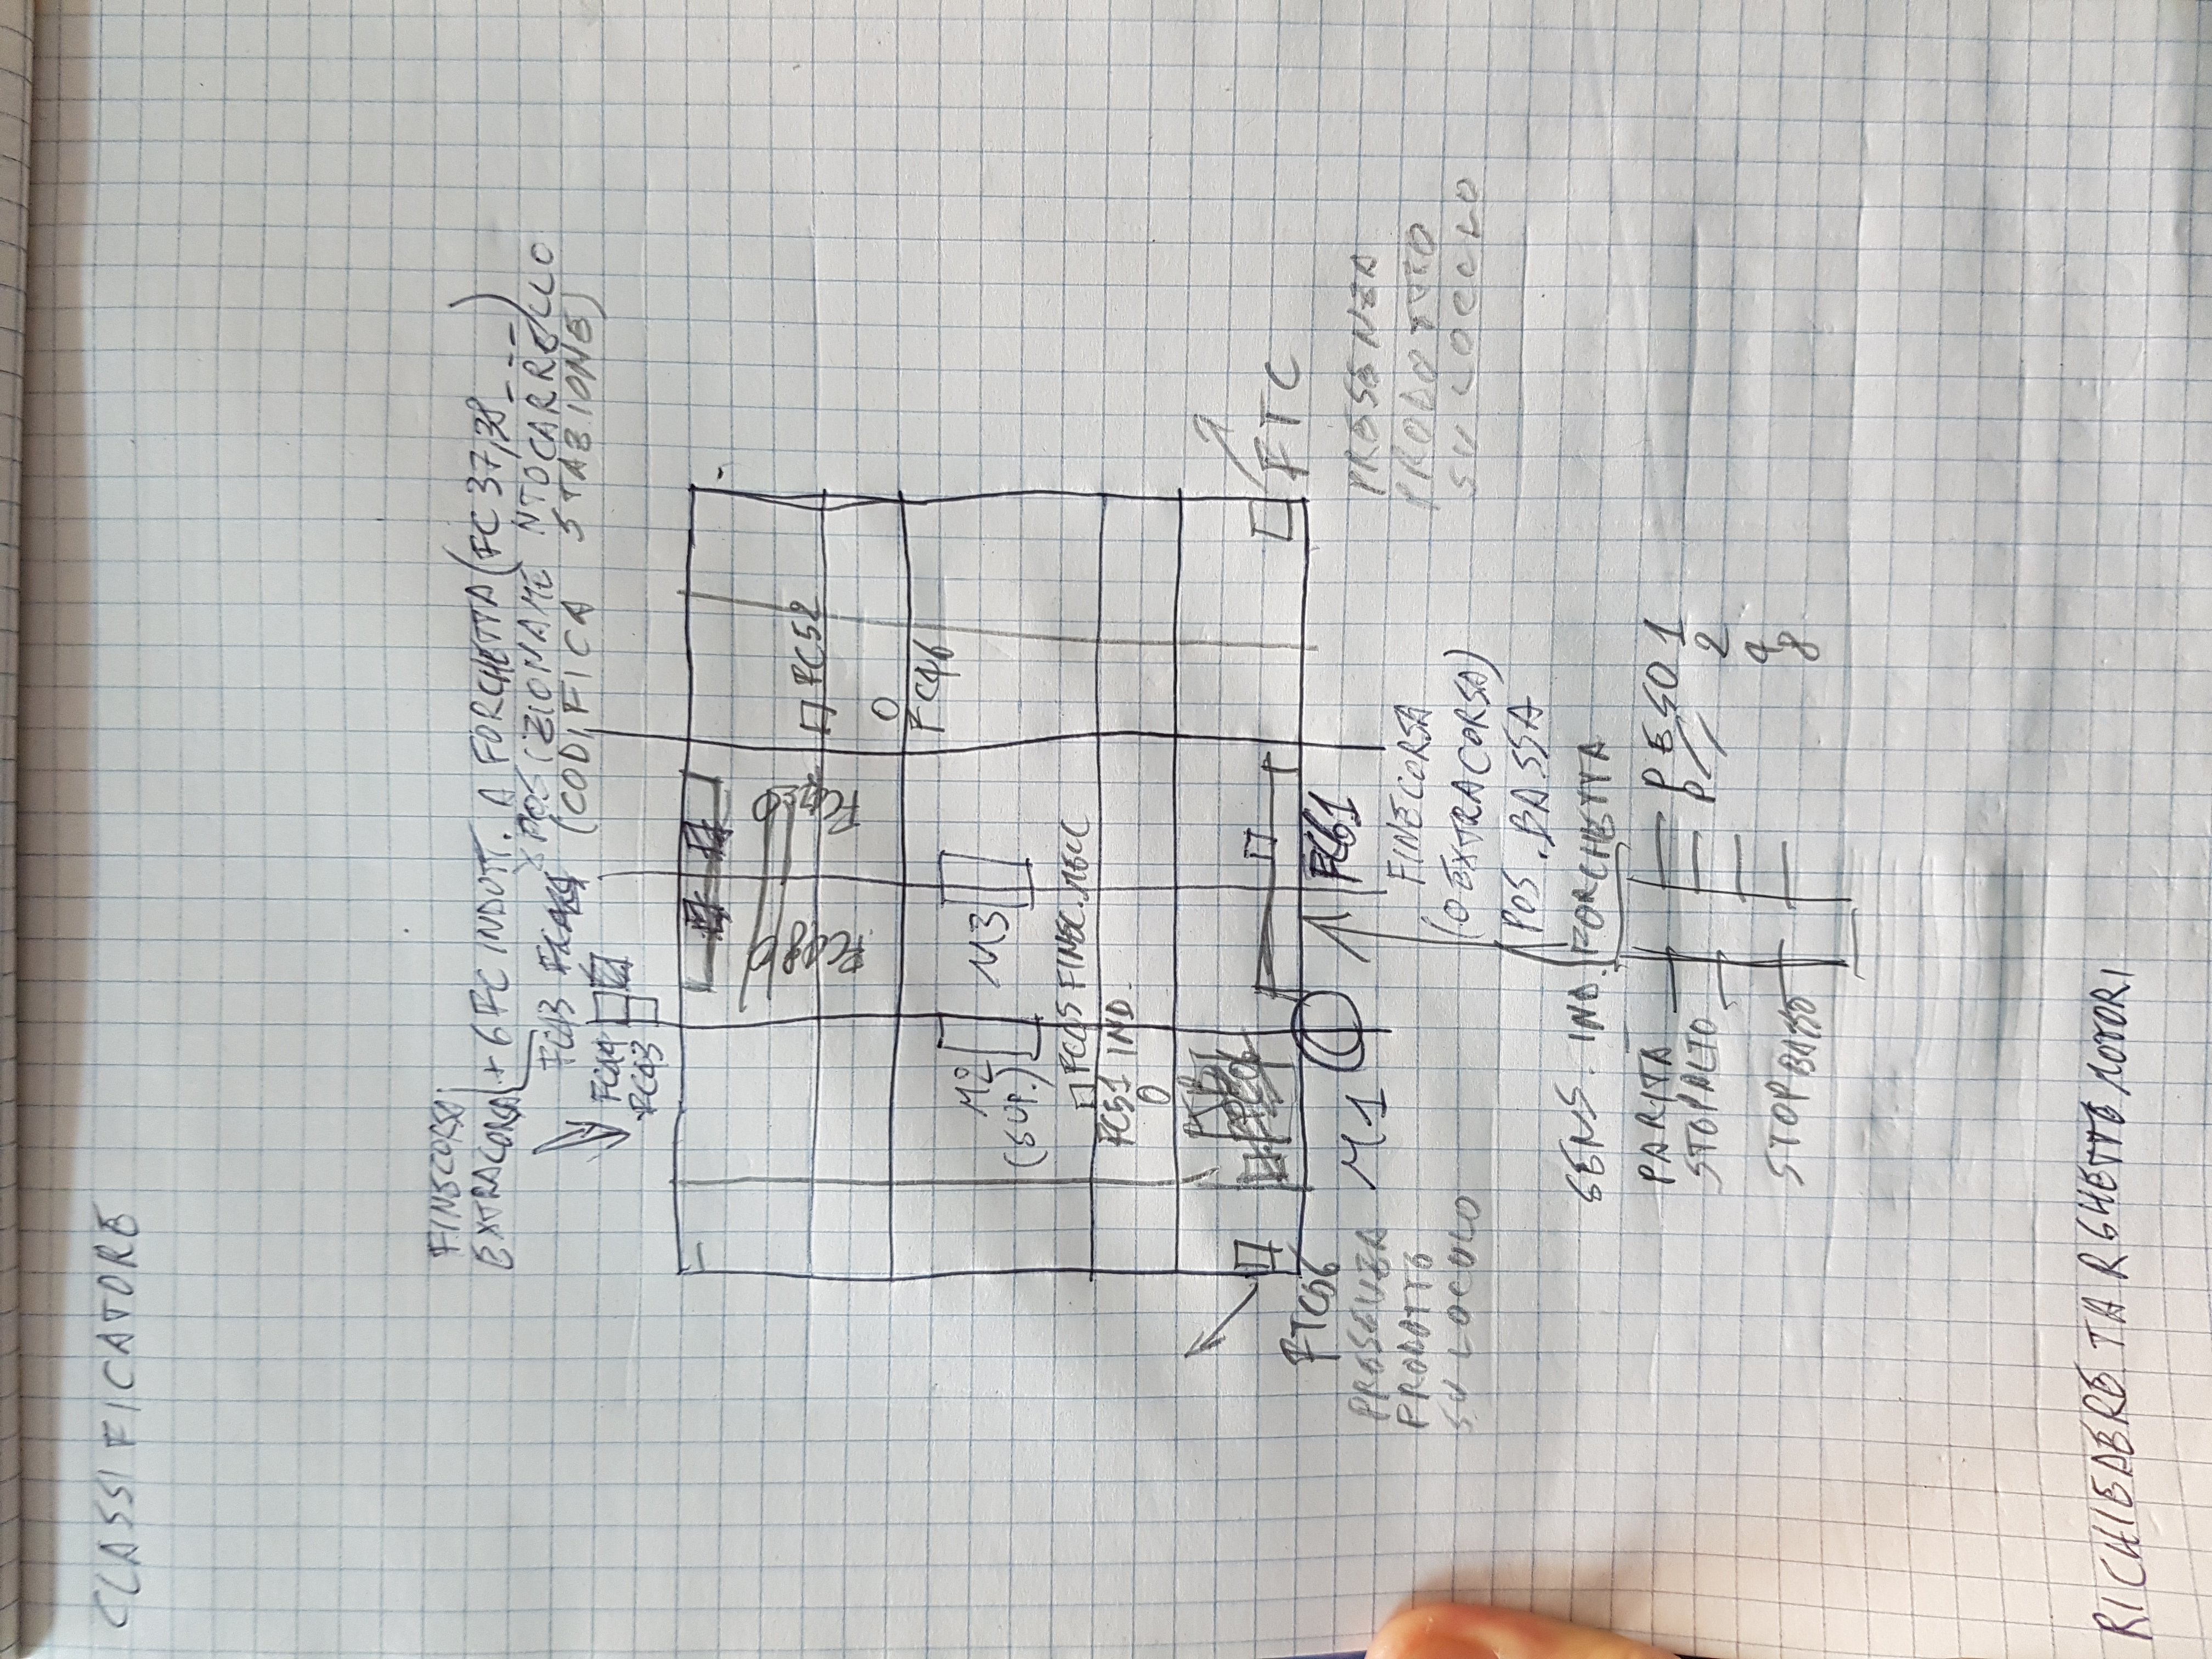 CLASSIFICATORE
FINECORSA
EXTRACORSA + 6 FC INDUTT. A FORCHETTA (FC 37,38 ---)
X POSIZIONAMENTO CARRELLO
(CODIFICA STAZIONE)
FC03
FC52
FC46
FC48
M2
(SUP.)
M3
FC05 FINEC. MECC
FC51 IND.
FC61
M1
FTC56
FTC
PRESENZA
PRODOTTO
SU LOCULO
PRESENZA
PRODOTTO
SU LOCULO
FINECORSA
(O EXTRACORSA)
POS. BASSA
SENS. IND. FORCHETTA
PARITA
STOP ALTO
STOP BASSO
PESO 1
2
4
8
RICHIEDERE TARGHETTE MOTORI